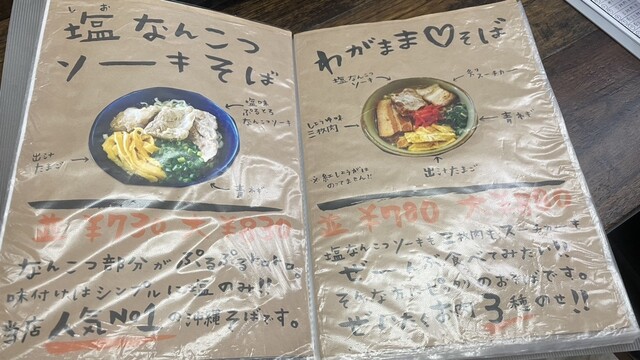 しお
塩なんこつ
ソーキそば
塩味
ぷるとろ
なんこつソーキ
出汁
たまご
青ねぎ
並 ¥730 大 ¥830
なんこつ部分がぷるぷるなれ。
味付けはシンプルに塩のみ!!
当店人気No1の沖縄そばです。
わがまま♡そば
塩なんこつ
ソーキ
しょうゆ味
三枚肉
青ねぎ
出汁たまご
※紅しょうがは
のってません!!
並 ¥780 大
塩なんこつソーキも三枚肉も
ぜーんぶ食べてみたい!!
そんな方に のおそばです。
ぜいたくお肉3種のせ!!